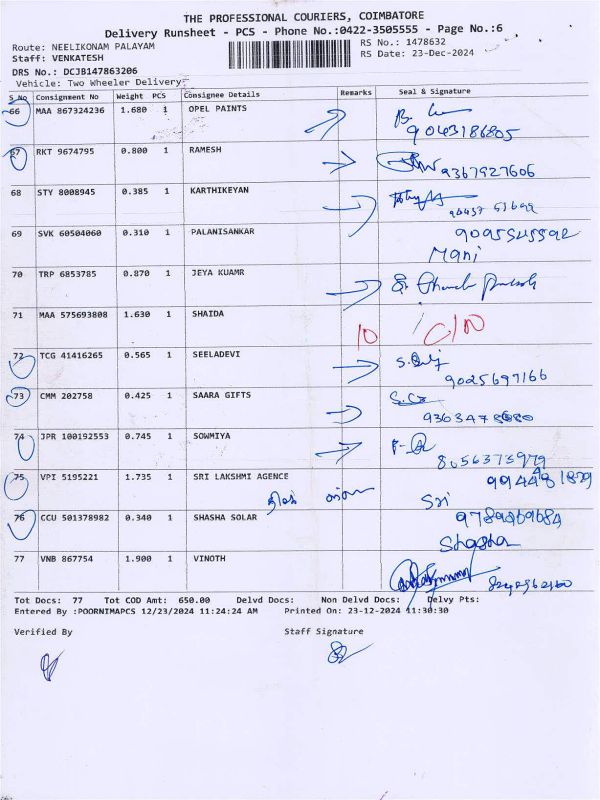 THE PROFESSIONAL COURIERS, COIMBATORE
Delivery Runsheet - PCS - Phone No.:0422-3505555 - Page No.:6
Route: NEELIKONAM PALAYAM RS No.: 1478632
Staff: VENKATESH RS Date: 23-Dec-2024
DRS No.: DCJB147863206
Vehicle: Two Wheeler Delivery
S No Consignment No Weight PCS Consignee Details Remarks Seal & Signature
66 MAA 867324236 1.680 1 OPEL PAINTS
9043186805
67 RKT 9674795 0.800 1 RAMESH
9367927606
68 STY 8008945 0.385 1 KARTHIKEYAN
69 SVK 60504060 0.310 1 PALANISANKAR
Mani
70 TRP 6853785 0.870 1 JEYA KUAMR
71 MAA 575693808 1.630 1 SHAIDA
10 C/N
72 TCG 41416265 0.565 1 SEELADEVI
9025697166
73 CMM 202758 0.425 1 SAARA GIFTS
74 JPR 100192553 0.745 1 SOWMIYA
8056373979
75 VPI 5195221 1.735 1 SRI LAKSHMI AGENCE
Sri
76 CCU 501378982 0.340 1 SHASHA SOLAR
Shasha
77 VNB 867754 1.900 1 VINOTH
Tot Docs: 77 Tot COD Amt: 650.00 Delvd Docs: Non Delvd Docs: Delvy Pts:
Entered By :POORNIMAPCS 12/23/2024 11:24:24 AM Printed On: 23-12-2024 11:30:30
Verified By Staff Signature